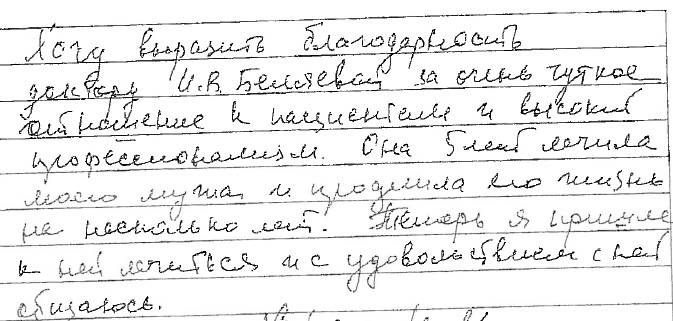 Хочу выразить благодарность
доктору И.В. Беляевой за очень чуткое
отношение к пациентам и высокий
профессионализм. Она 5 лет лечила
моего мужа и продлила его жизнь
на несколько лет. Теперь я пришла
к ней лечиться и с удовольствием с ней
общаюсь.